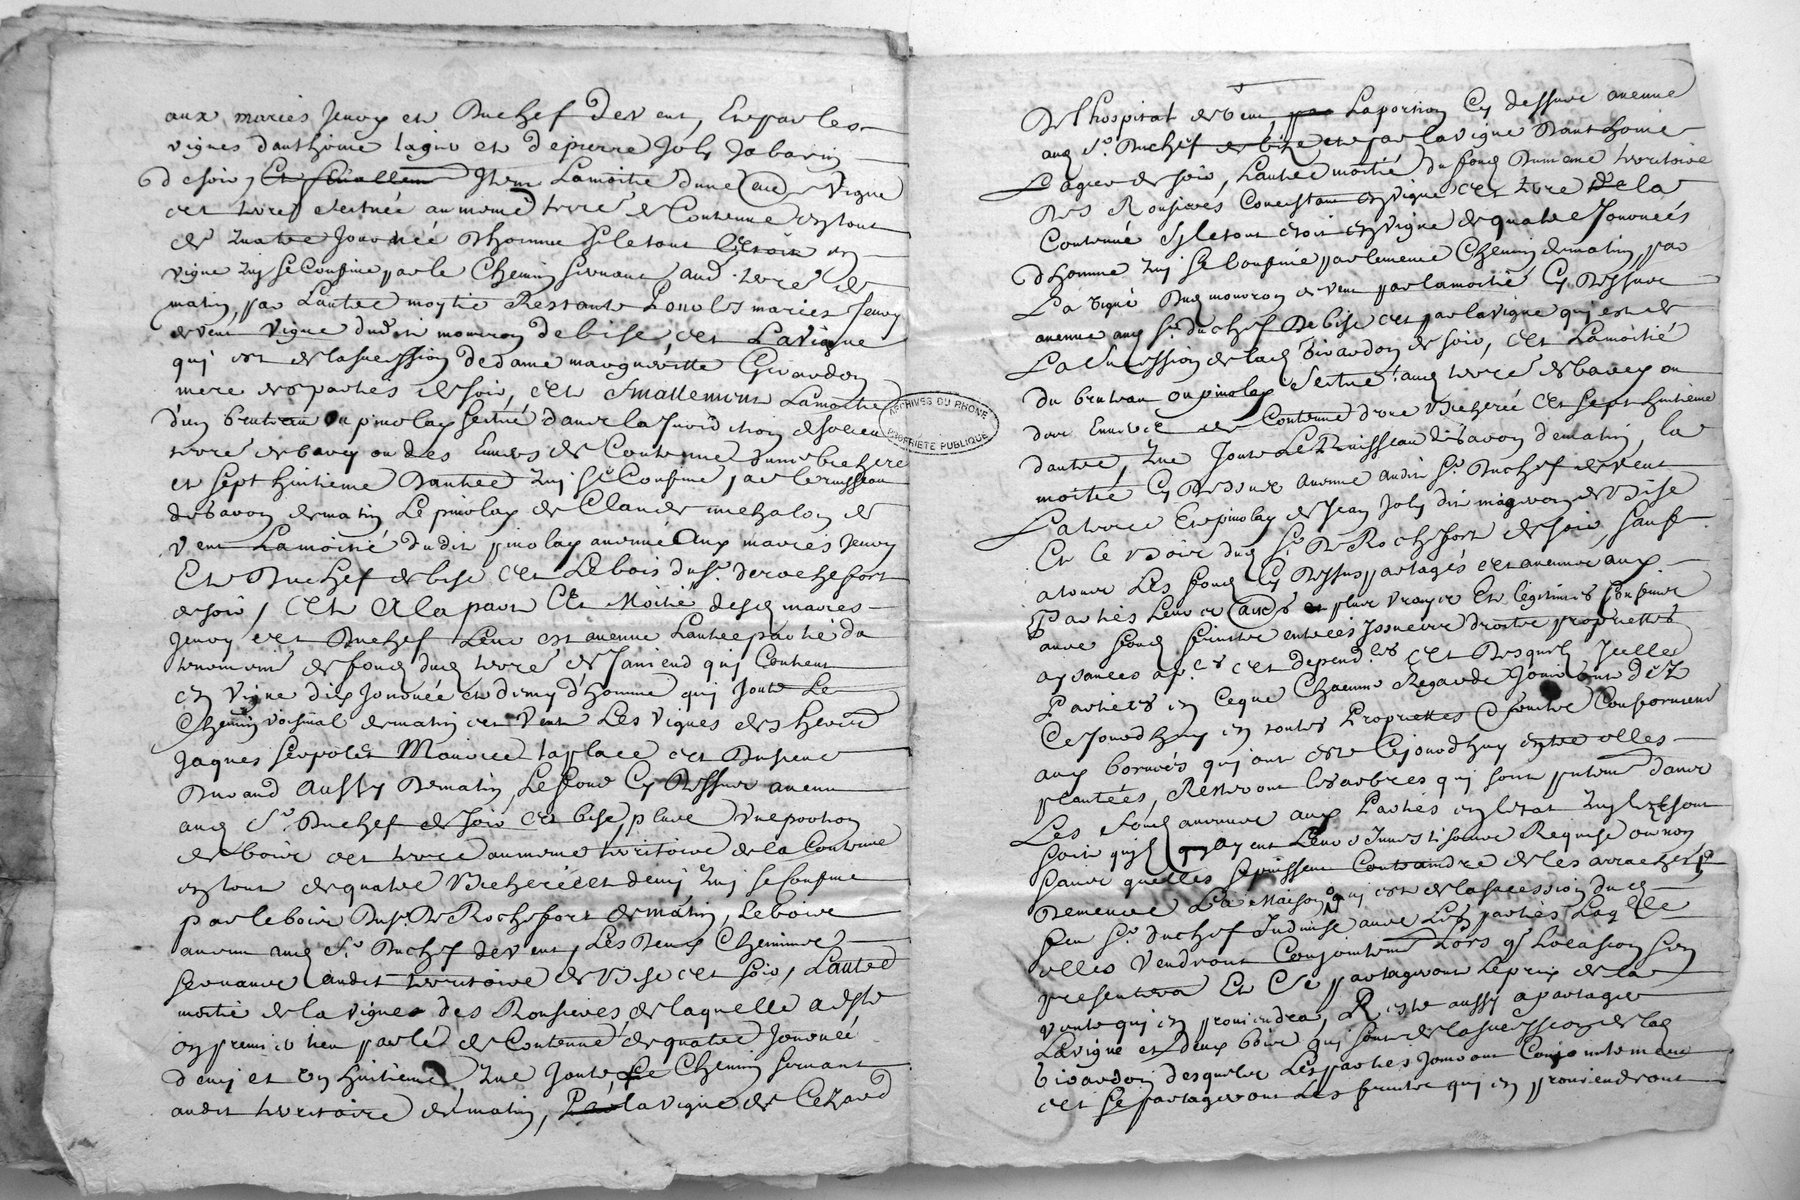 aux mariés Jenvoy et Duchef de vent, Et par les
vignes d'anthoine lagier et de pierre Joly
de soir, Item Lamoitié d'une vigne
et terre scituée au meme terre de Contenue en tout
de quatre Journée d'homme sy le tout estoit en
vigne quj se Confine par le Chemin servant aud. terre de
matin, par Lautre moytie Restante pour les mariés Jenvoy
de vent vigne dudit mouron de bise, et La vigne
quj est de la sucession de dame margueritte Girardon
mere des parties de soir, et finallement Lamoitie
d'un bruteau ou pinolay scitué dans la Jurisdiction
terre de bavey ou des de Contenue d'une bicheree
et sept huitieme d'autre quj se Confine par le ruisseau
de bavon de matin Le pinolay de Claude michalon de
vent Lamoitié dudit pinolay avenue aux mariés Jenvoy
Et Duchef de bise et Le bois du Sr. de rochefort
de soir, et a la part et moitié desd mariés
Jenvoy et Duchef Leur est avenue Lautre partie du
tenement de fond dud terre de qui Contient
en vigne dix Journée et demy d'homme quj Joute Le
Chemin voisinal de matin et vent Les vignes des
Jaques Maurice laplace et
Durand aussy de matin, Le fond Cy dessus avenu
aud Sr. Duchef de soir et bise, plus une portion
de bois et terre au meme territoire de la Contenue
en tout de quatre Bicherée et demj quj se Confine
par le bois du Sr. De Rochefort de matin, Le bois
avenu aud Sr. Duchef de vent, Les Deux Chemins
servants audit territoire de Bise et soir, Lautre
moitié de la vigne des Ronsieres de laquelle a esté
en premier lieu parlé de Contenue de quatre Journée
demj et un huitieme, que Joute Le Chemin servant
audit territoire de matin, la vigne de
De Lhospital de vent La portion Cy dessus avenue
aud Sr. Duchef de bize et par la vigne D'anthoine
Lagier de soir, Lautre moitié du fond Du meme territoire
Des Ronsieres Consistant en vigne et terre de la
Contenue sy le tout etoit en vigne de quatre Journées
d'homme quj se Confine par le meme Chemin de matin, par
La vigne Dud mouron de vent par la moitié Cy Dessus
avenue aud Sr. du chef De bise et par la vigne quj est de
La Sucession de lad Girardon de soir, et Lamoitié
du bruteau ou pinolay scitué aud terre de bavey ou
Contenue d'une Bicherée et sept huitieme
d'autre, que Joute Le Ruisseau de bavon de matin, la
moitié Cy Dessus avenue audit Sr. Duchef de vent
La terre Et pinolay de Jean Joly dit de Bise
Et le bois dud Sr. De Rochefort de soir, sauf
a tous Les fonds Cy Dessus partagés et avenus aux
Parties Leurs autres et plus vrayes Et legitimes Confins
avec fond fruits entrées Issues droits proprietés
aysances ap.ces et depend.ces et Desquels Jcelles
Parties en Ceque Chacune Regarde Jouiront dez
Cejourdhuy en toutes Proprietés & fruits Conformement
aux bornes quj ont esté Cejourdhuy entre elles
plantées, Resteront les arbres quj sont dans
Les fond avenus aux Parties en l'etat quilz sont
soit quils ayent Leurs Requise ou non
sans quelles se puissent Contraindre de les arracher
Demeure La Maison quj est de la sucession dud
feu Sr. duchef Indivise entre Les parties Laqlle
elles vendront Conjointement Lors q. Locasion sen
presentera Et Se partageront Le prix de la
vente quj en proviendra, Reste aussy a partager
La vigne et deux bois quj sont de la sucession de lad
Girardon desquels Les parties Jouiront Conjointement
et se partageront Les fruits quj en proviendront
ARCHIVES DU RHONE
PROPRIÉTÉ PUBLIQUE